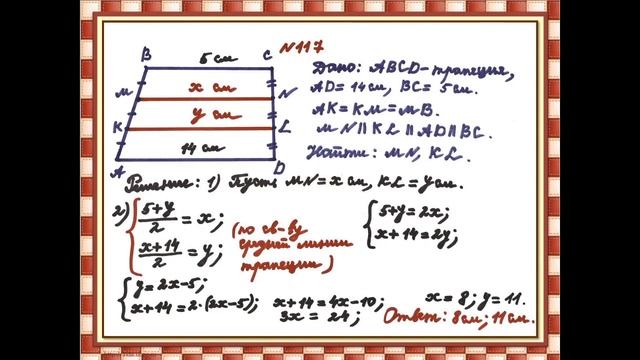 N117
B
5 см
C
M
x см
N
K
y см
L
A
14 см
D
Дано: ABCD - трапеция,
AD = 14 см, BC = 5 см.
AK = KM = MB.
MN || KL || AD || BC.
Найти: MN, KL.
Решение: 1) Пусть MN = x см, KL = y см.
2) { (5+y)/2 = x;
(x+14)/2 = y;
(по св-ву
средней линии
трапеции)
{ 5+y = 2x;
x+14 = 2y;
{ y = 2x-5;
x+14 = 2·(2x-5);
x+14 = 4x-10;
3x = 24;
x = 8; y = 11.
Ответ: 8 см; 11 см.